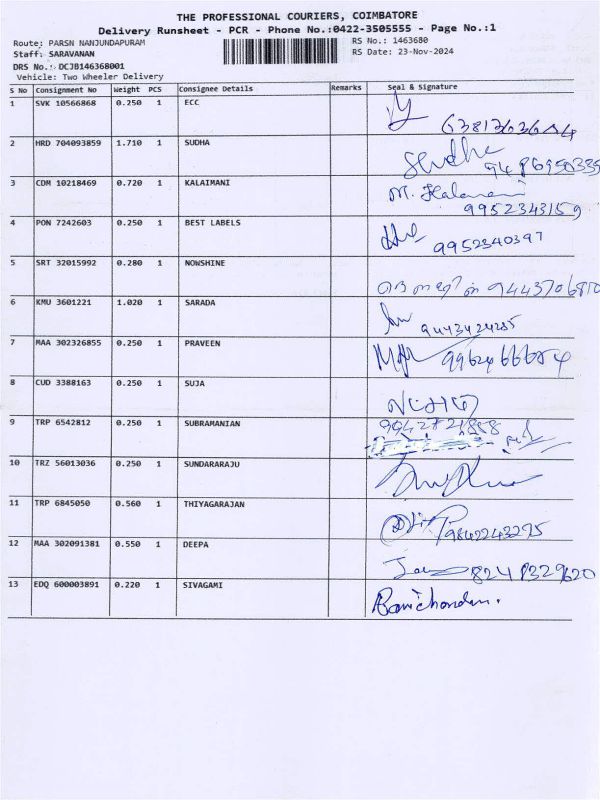 THE PROFESSIONAL COURIERS, COIMBATORE
Delivery Runsheet - PCR - Phone No.:0422-3505555 - Page No.:1
Route: PARSN NANJUNDAPURAM RS No.: 1463680
Staff: SARAVANAN RS Date: 23-Nov-2024
DRS No.: DCJB146368001
Vehicle: Two Wheeler Delivery
S No Consignment No Weight PCS Consignee Details Remarks Seal & Signature
1 SVK 10566868 0.250 1 ECC
2 HRD 704093859 1.710 1 SUDHA Sudha
3 CDM 10218469 0.720 1 KALAIMANI M. Kalaimani
9952343159
4 PON 7242603 0.250 1 BEST LABELS
9952340397
5 SRT 32015992 0.280 1 NOWSHINE
6 KMU 3601221 1.020 1 SARADA
7 MAA 302326855 0.250 1 PRAVEEN
8 CUD 3388163 0.250 1 SUJA
9 TRP 6542812 0.250 1 SUBRAMANIAN
10 TRZ 56013036 0.250 1 SUNDARARAJU
11 TRP 6845050 0.560 1 THIYAGARAJAN
9842243295
12 MAA 302091381 0.550 1 DEEPA
8248329620
13 EDQ 600003891 0.220 1 SIVAGAMI